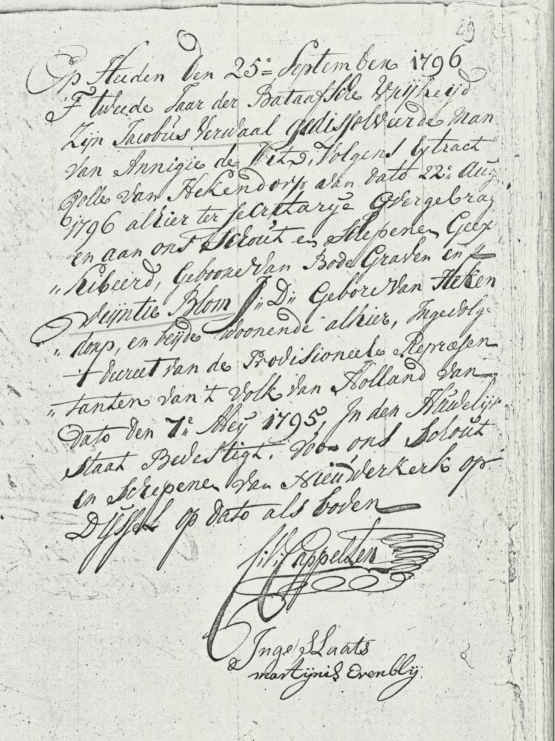 Op Heeden den 25e September 1796
't tweede Jaar der Bataafsche Vrijheijd
Zijn Jacobus Verwaal gedissolveerde Man
van Annigie de Wit, Volgens Extract
Rolle van Hekendorp van dato 22e Aug
1796 alhier ter secretarije Overgebrag
en aan ons Schout en Schepenen Geex
"hibeerd, Geboore van Bode Graven en
Neijntie Blom J: D: Geboore van Heken
"dorp, en beijde woonende alhier, Ingevolg
't decreet van de Provisioneele Repræsen
"tanten van 't Volk van Holland van
dato den 7e Meij 1795, In den Huwelijx
staat Bevestigt. Voor ons Schout
en Schepenen van Nieuwerkerk op
D'Yssel op dato als boven
Cappellen
Inge Slaats
martijnis Evenblij